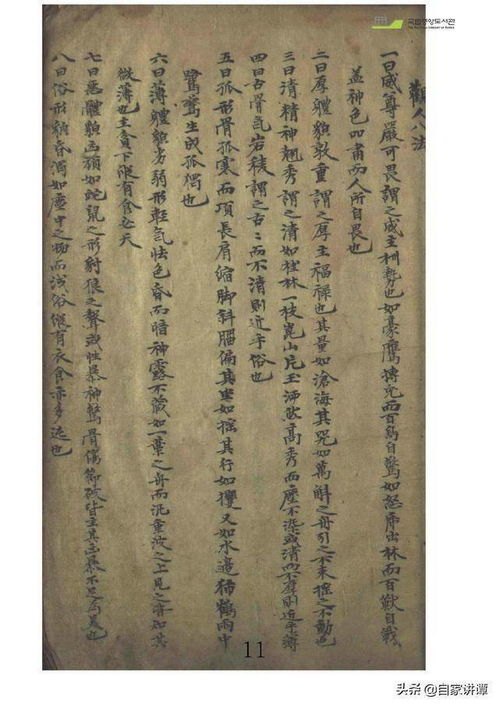 觀人八法
一曰威尊嚴可畏謂之威主权势也如豪鷹搏兔而百鳥自驚如怒虎出林而百獸自戰
蓋神色也肅而人所自畏也
二曰厚體貌敦重謂之厚主福祿也其量如滄海其器如萬斛之舟引之不來搖之不動也
三曰清精神翹秀謂之清如桂林一枝崑山片玉洒然高秀而塵不染或清而不厚則近乎薄
四曰古骨氣岩稜謂之古古而不清則近乎俗也
五曰孤形骨孤寒而項長肩縮脚斜腦偏其坐如搖其行如攫又如水邊獨鶴雨中
鷺鷥生成孤獨也
六曰薄體貌劣弱形輕氣怯色昏而暗神露不藏如一葉之舟而汎重波之上見之皆知其
微薄也主貧下縱有食必夭
七曰惡體貌凶頑如蛇鼠之形豺狼之聲或性暴神驚骨傷節破皆主其凶暴不足為美也
八曰俗形貌昏濁如塵中之物而淺俗縱有衣食亦多迍也
11
국립중앙도서관
头条 @自家讲谭